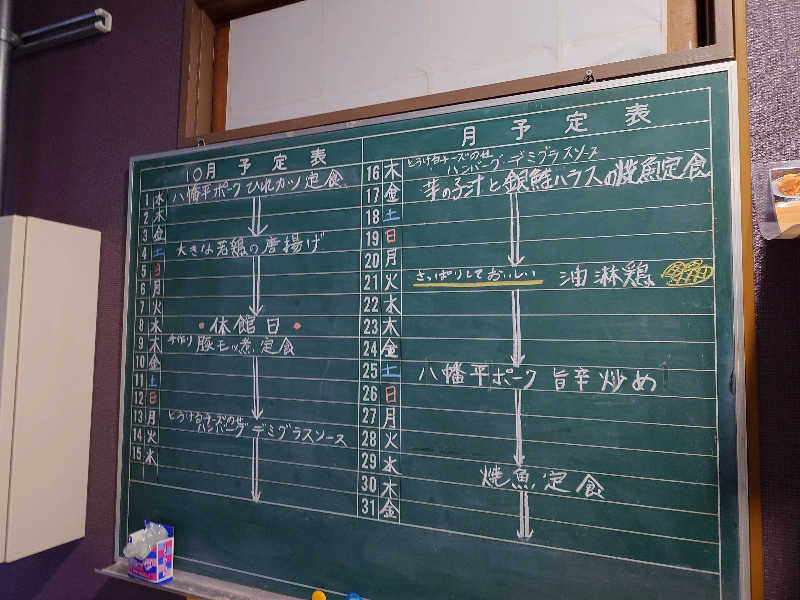 10月 予定表
1 水 八幡平ポークひれカツ定食
2 木
3 金
4 土 大きな若鶏の唐揚げ
5 日
6 月
7 火
8 水 ・休館日・
9 木 手作り 豚モツ煮定食
10 金
11 土
12 日
13 月 とろけるチーズのせ
ハンバーグ デミグラスソース
14 火
15 水
月 予定表
16 木 とろけるチーズのせ
ハンバーグ デミグラスソース
17 金 芋の子汁と銀鮭ハラスの焼魚定食
18 土
19 日
20 月
21 火 さっぱりしておいしい 油淋鶏
22 水
23 木
24 金
25 土 八幡平ポーク 旨辛炒め
26 日
27 月
28 火
29 水 焼魚定食
30 木
31 金